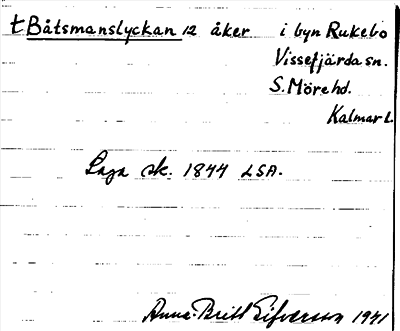 t Båtsmanslyckan 12 åker i byn Rukebo
Vissefjärda sn.
S. Möre hd.
Kalmar L.
Laga sk. 1844 LSA.
Anna-Britt Sifversson 1941